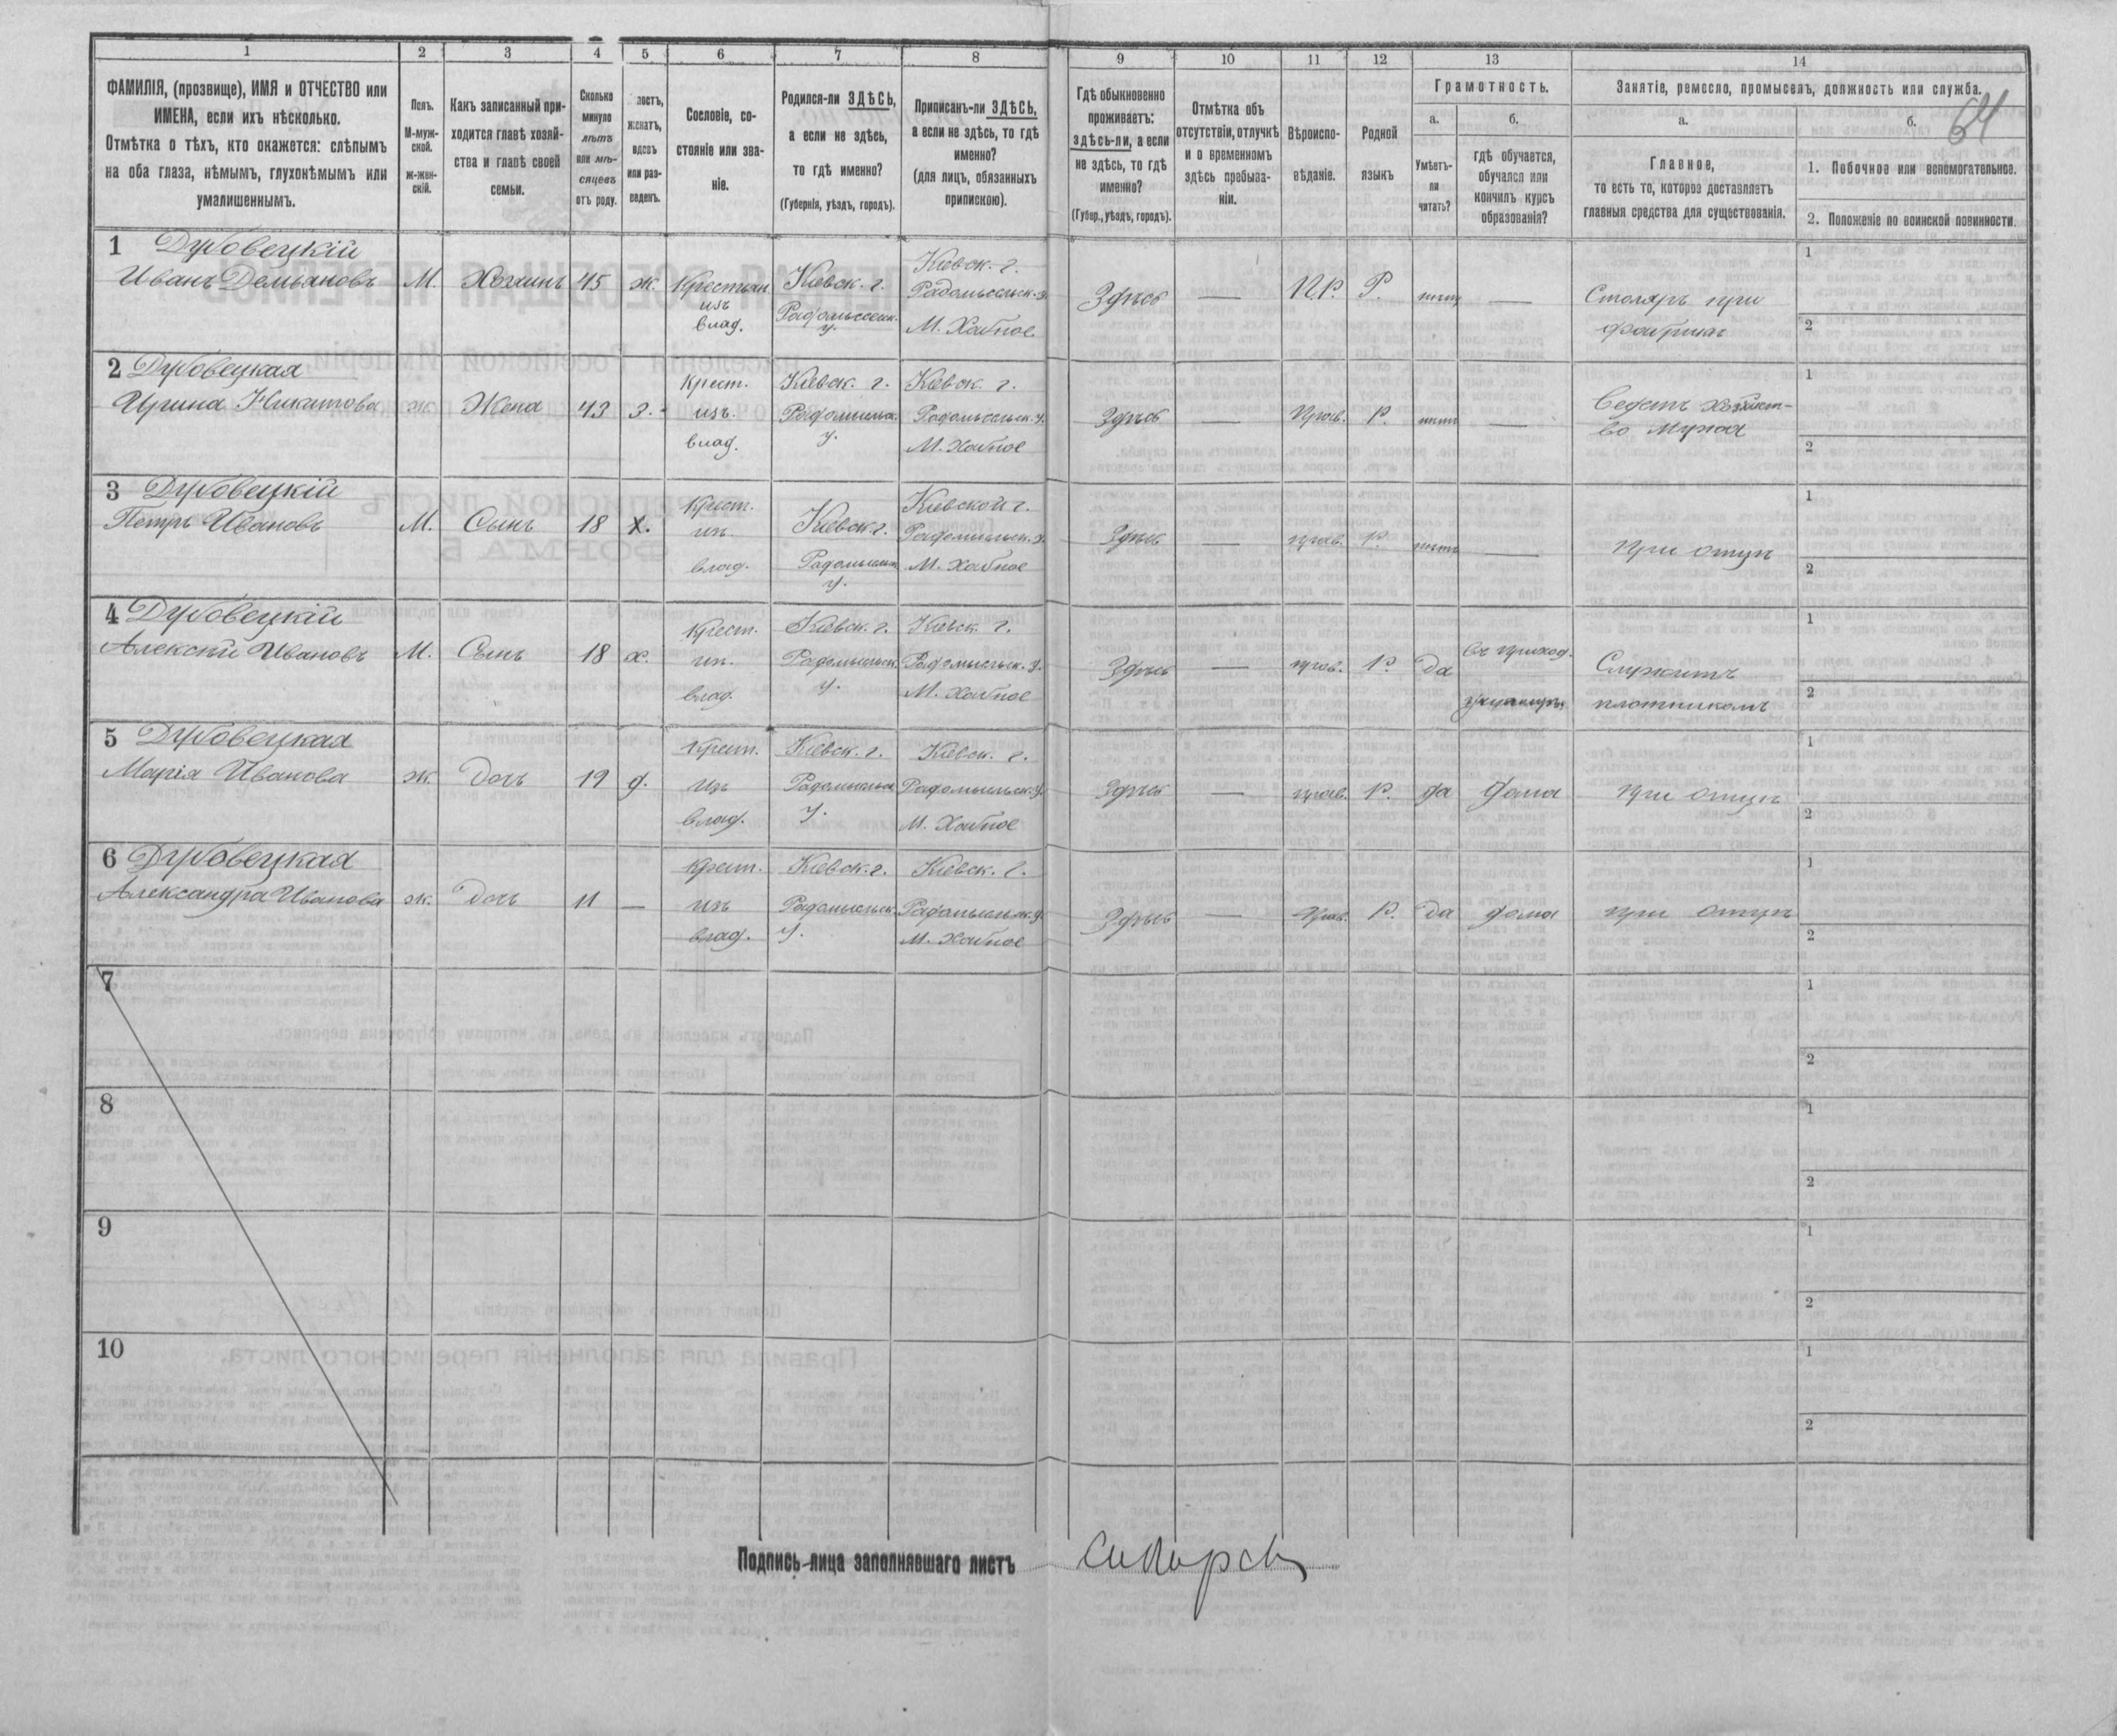 1 2 3 4 5 6 7 8 9 10 11 12 13 14
ФАМИЛІЯ, (прозвище), ИМЯ и ОТЧЕСТВО или
ИМЕНА, если ихъ нѣсколько.
Отмѣтка о тѣхъ, кто окажется: слѣпымъ
на оба глаза, нѣмымъ, глухонѣмымъ или
умалишеннымъ.
Полъ.
М-муж-
ской.
ж-жен-
скій.
Какъ записанный при-
ходится главѣ хозяй-
ства и главѣ своей
семьи.
Сколько
минуло
лѣтъ
или мѣ-
сяцевъ
отъ роду.
лостъ,
женатъ,
вдовъ
или раз-
веденъ.
Сословіе, со-
стояніе или зва-
ніе.
Родился-ли ЗДѢСЬ,
а если не здѣсь,
то гдѣ именно?
(Губернія, уѣздъ, городъ).
Приписанъ-ли ЗДѢСЬ,
а если не здѣсь, то гдѣ
именно?
(для лицъ, обязанныхъ
припискою).
Гдѣ обыкновенно
проживаетъ:
здѣсь-ли, а если
не здѣсь, то гдѣ
именно?
(Губер., уѣздъ, городъ).
Отмѣтка объ
отсутствіи, отлучкѣ
и о временномъ
здѣсь пребыва-
ніи.
Вѣроиспо-
вѣданіе.
Родной
языкъ
Грамотность.
а.
Умѣетъ-
ли
читать?
б.
гдѣ обучается,
обучался или
кончилъ курсъ
образованія?
Занятіе, ремесло, промыселъ, должность или служба.
а.
Главное,
то есть то, которое доставляетъ
главныя средства для существованія.
б.
64
1. Побочное или вспомогательное.
2. Положеніе по воинской повинности.
1 Дубовецкій
Иванъ Демьяновъ
М.
Хозяинъ
45
ж.
Крестьян
изъ
влад.
Кіевск. г.
Радомысльск.
у.
Кіевск. г.
Радомысльск. у.
М. Хабное
Здѣсь
—
ПР.
Р.
нѣтъ
—
Столяръ при
фабрикѣ
1
2
2 Дубовецкая
Ирина Никитова
ж.
Жена
43
з.
Крест.
изъ
влад.
Кіевск. г.
Радомысльск.
у.
Кіевск. г.
Радомысльск. у.
М. Хабное
Здѣсь
—
Прав.
Р.
нѣтъ
—
Ведетъ хозяйст-
во мужа
1
2
3 Дубовецкій
Петръ Ивановъ
М.
Сынъ
18
х.
Крест.
изъ
влад.
Кіевск. г.
Радомысльск.
у.
Кіевской г.
Радомысльск. у.
М. Хабное
Здѣсь
—
прав.
Р.
нѣтъ
—
при отцѣ
1
2
4 Дубовецкій
Алексѣй Ивановъ
М.
Сынъ
18
х.
Крест.
изъ
влад.
Кіевск. г.
Радомысльск.
у.
Кіевск. г.
Радомысльск. у.
М. Хабное
Здѣсь
—
прав.
Р.
да
въ приход.
училищѣ
Служитъ
плотникомъ
1
2
5 Дубовецкая
Марія Иванова
ж.
Дочь
19
д.
Крест.
изъ
влад.
Кіевск. г.
Радомысльск.
у.
Кіевск. г.
Радомысльск. у.
М. Хабное
Здѣсь
—
прав.
Р.
да
дома
при отцѣ
1
2
6 Дубовецкая
Александра Иванова
ж.
Дочь
11
—
Крест.
изъ
влад.
Кіевск. г.
Радомысльск.
у.
Кіевск. г.
Радомысльск. у.
М. Хабное
Здѣсь
—
прав.
Р.
да
дома
при отцѣ
1
2
7
1
2
8
1
2
9
1
2
10
1
2
Подпись лица заполнявшаго листъ